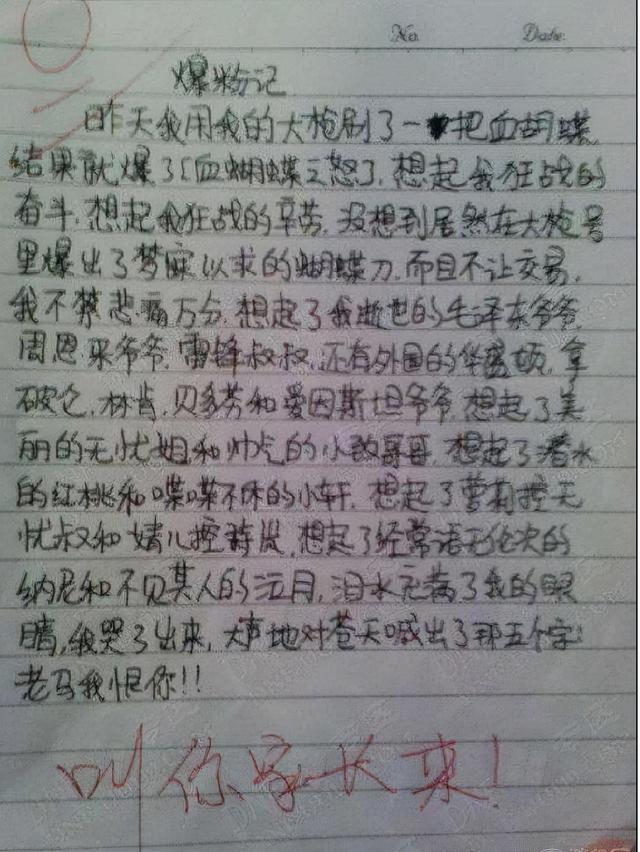 No. Date.
爆粉记
昨天我用我的大枪刷了一把血蝴蝶
结果就爆了血蝴蝶之怒了,想起我狂战的
奋斗,想起我狂战的辛苦,没想到居然在大枪号
里爆出了梦寐以求的蝴蝶刀,而且不让交易,
我不禁悲痛万分,想起了我逝世的毛泽东爷爷,
周恩来爷爷,雷锋叔叔,还有外国的华盛顿,拿
破仑,林肯,贝多芬和爱因斯坦爷爷,想起了美
丽的无忧姐和帅气的小敦哥哥,想起了潜水
的红桃和喋喋不休的小轩,想起了萝莉控无
忧叔和婧儿控,想起了经常语无伦次的
纳尼和不见某人的沅月,泪水充满了我的眼
睛,我哭了出来,大声地对苍天喊出了那五个字:
老马我恨你!!
叫你家长来!